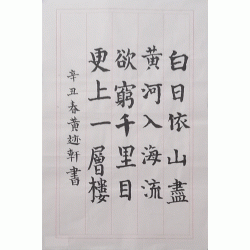 白日依山盡
黃河入海流
欲窮千里目
更上一層樓
辛丑春黃迹軒書